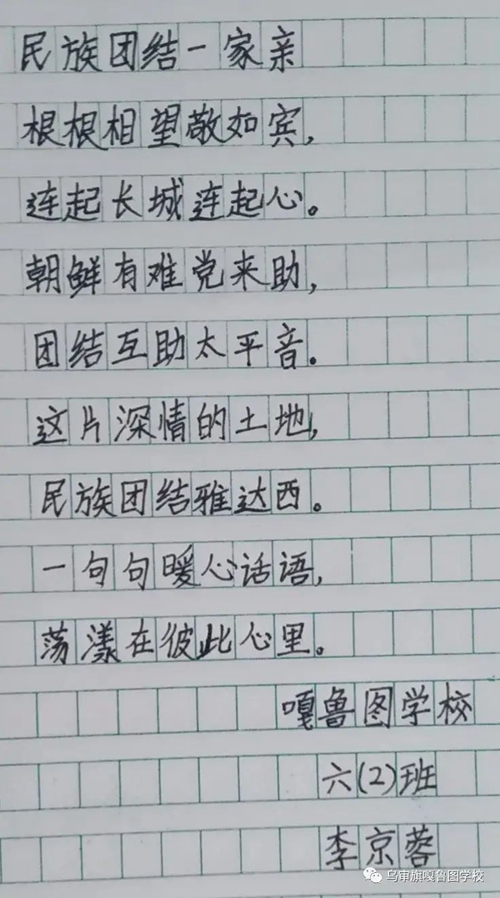 民族团结一家亲
根根相望敬如宾,
连起长城连起心。
朝鲜有难党来助,
团结互助太平音.
这片深情的土地,
民族团结雅达西。
一句句暖心话语,
荡漾在彼此心里。
嘎鲁图学校
六(2)班
李京蓉
乌审旗嘎鲁图学校